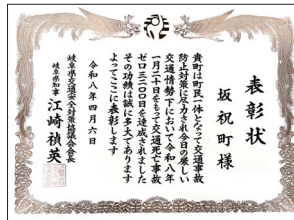 表彰状
坂祝町様
貴町は町民一体となって交通事故
防止対策に尽力され今日の厳しい
交通情勢下において令和八年
一月二十日をもって交通死亡事故
ゼロ三二〇〇日を達成されました
その功績は誠に多大であります
よってここに表彰します
令和八年四月六日
岐阜県交通安全対策協議会会長
岐阜県知事 江崎禎英